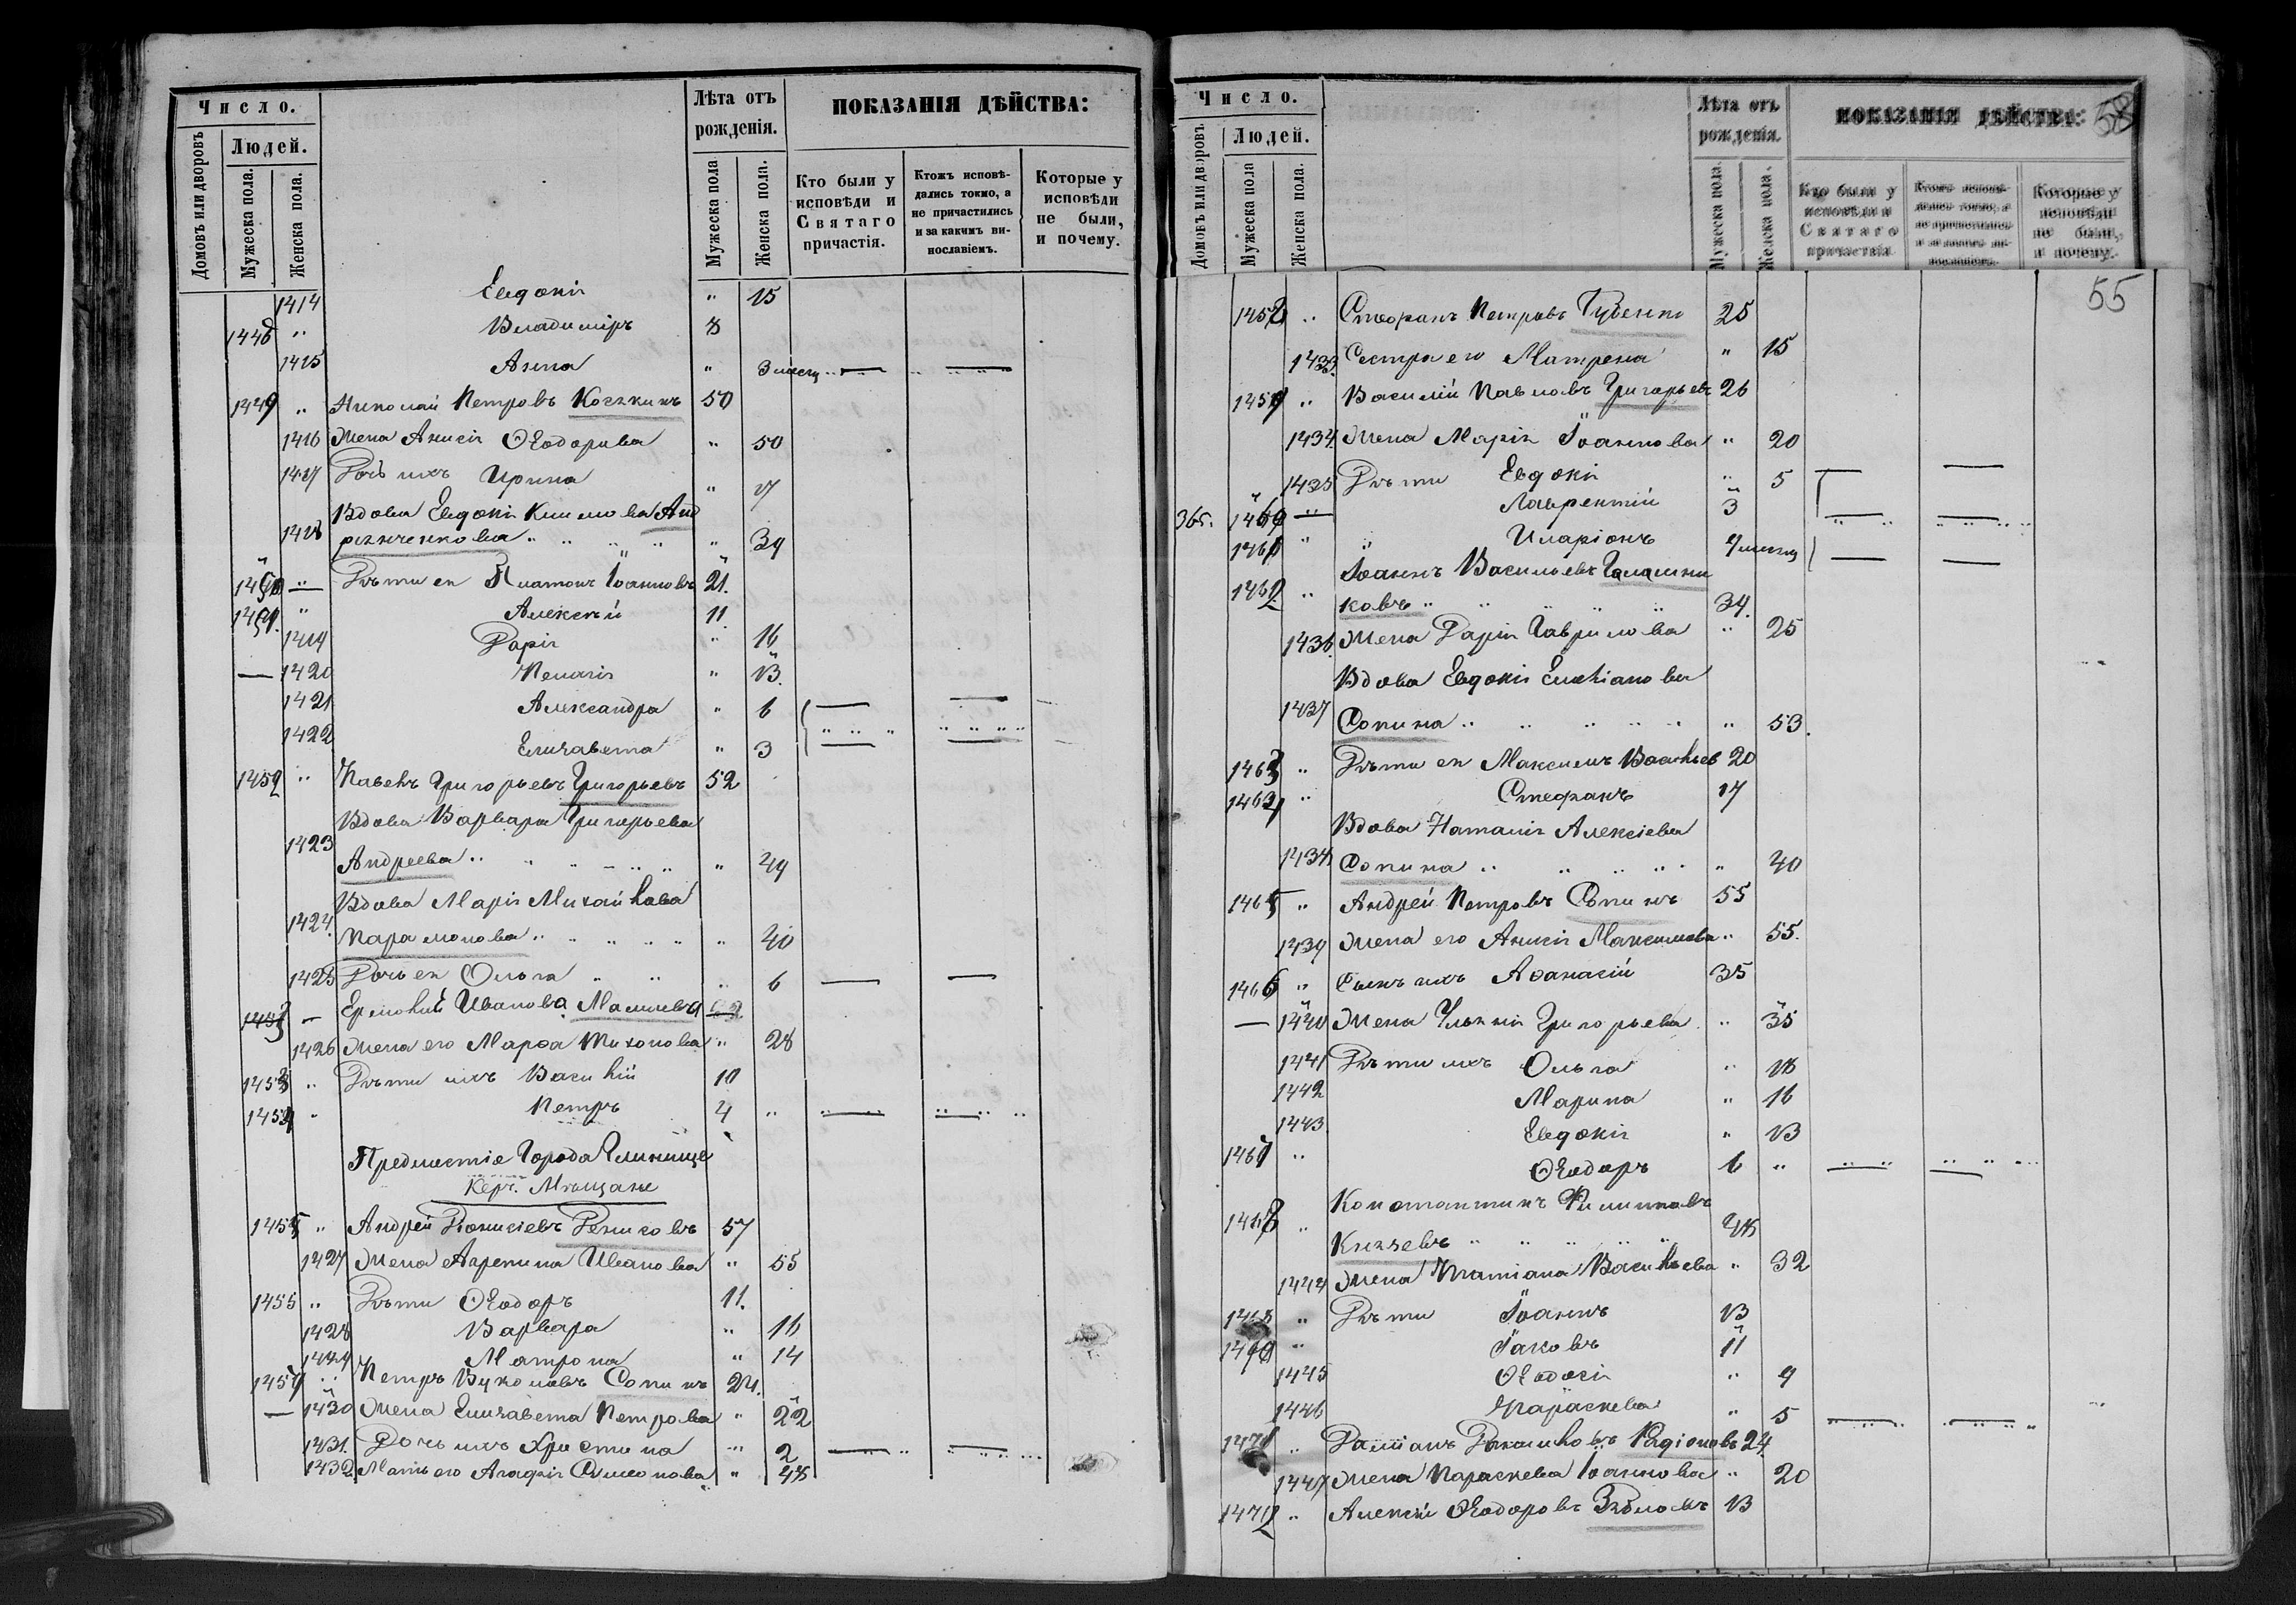 Число.
Домовъ или дворовъ
Людей.
Мужеска пола.
Женска пола.
Лѣта отъ рожденія.
Мужеска пола
Женска пола.
ПОКАЗАНІЯ ДѢЙСТВА:
Кто были у исповѣди и Святаго причастія.
Ктожъ исповѣдались токмо, а не причастились и за какимъ винославіемъ.
Которые у исповѣди не были, и почему.
1414 Евдокія " 15
1448 " Владиміръ 8
1415 Анна " 3 месяц
1449 " Николай Петровъ 50
1416 Жена Анисія Ѳеодорова " 50
1417 Дочь ихъ Ирина " 17
Вдова Евдокія Климова Анд
1418 " 39
1450 — Дѣти ея Платонъ Іоанновъ 21.
1451. " Алексѣй 11
1419 Дарія " 16
— 1420 Пелагія " 13.
1421 Александра " 6
1422 Елизавета " 3
1452 " Павелъ Григорьевъ Григорьевъ 52
Вдова Варвара Григорьева
1423 Андреева " 49
Вдова Марія Михайлова
1424. Парамонова " 40
1425 Дочь ея Ольга " 6
1453 — Иванова
1426 Жена его Марѳа Тихонова " 28
1453 " Дѣти ихъ Василій 10
1454 " Петръ 4 "
Предмѣстіе Города Глинище
Керч. Мѣщане
1455 " Андрей Діонисіевъ 57
1427 Жена Агрепина Иванова " 55
1455 " Дѣти Ѳеодоръ 11.
1428 Варвара " 16
1429 Матрона " 14
1457 " Петръ Вуколовъ Сопинъ 24.
— 1430 Жена Елизавета Петрова " 22
1431. Дочь ихъ Христина " 2
1432 Мать его Агафія Симонова " 48
Число.
Домовъ или дворовъ.
Людей.
Мужеска пола
Женска пола.
Лѣта отъ рожденія.
Мужеска пола.
Женска пола.
ПОКАЗАНІЯ ДѢЙСТВА:
58
Кто были у исповѣди и Святаго причастія.
Ктожъ исповѣдались токмо, а не причастились и за какимъ винославіемъ.
Которые у исповѣди не были, и почему.
55
1458 " Стефанъ Петровъ Губенко 25
1433. Сестра его Матрена " 15
1459 " Василій Павловъ Григорьевъ 26
1434. Жена Марія Іоаннова " 20
1435 Дѣти Евдокія " 5
365. 1460 — Лаврентій 3
1461 " Иларіонъ 7 месяц
Іоаннъ Васильевъ Галашни
1462 " ковъ " 34.
1436. Жена Дарія Гаврилова " 25
Вдова Евдокія Емеліанова
1437 Сопина " 53.
1463 " Дѣти ея Максимъ Васильев 20
1464 " Стефанъ 17
Вдова Наталія Алексіева
1438 Сопина " 40
1465 " Андрей Петровъ Сопинъ 55
1439 Жена его Анисія Максимова " 55.
1466 " Сынъ ихъ Аѳанасій 35
— 1440 Жена Уліанія Григорьева " 35
1441 Дѣти ихъ Ольга " 18
1442 Марина " 16
1443. Евдокія " 13
1467 " Ѳеодоръ 6 "
Константинъ Филиповъ
1468 " Князевъ " 48
1444 Жена Татіана Васильева " 32
1468 " Дѣти Іоаннъ 13
1470 " Іаковъ 11
1445 Ѳеодосія " 9
1446 Параскева " 5
1471 " Радіоновъ 24.
1447 Жена Параскева Іоаннова " 20
1472 " Алексій Ѳеодоровъ 13